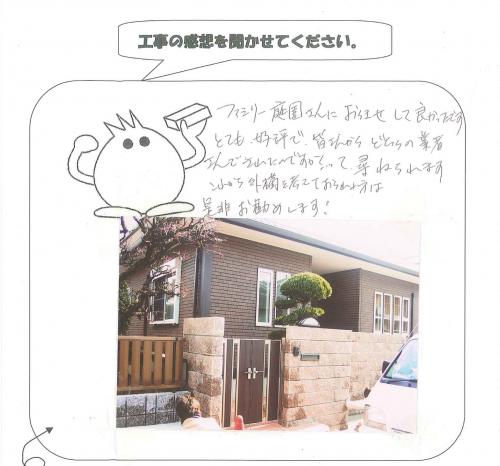 工事の感想を聞かせてください。
ファミリー庭園さんにお任せして良かったです
とても好評で、皆さんからどちらの業者
さんでされたんですか?って尋ねられます
これから外構を考えておられる方は
是非お勧めします!